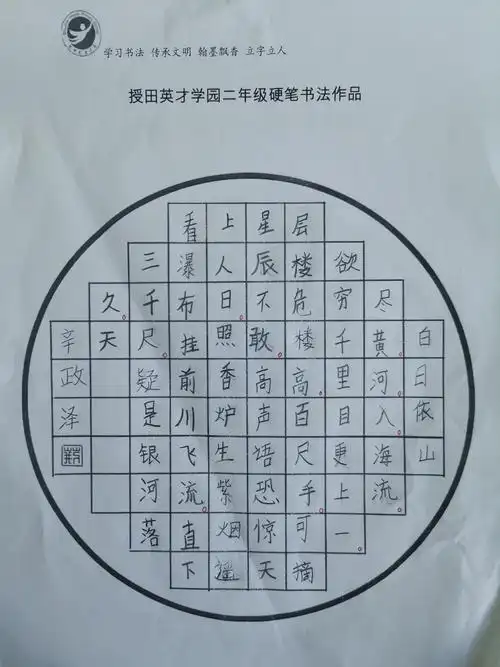 学习书法 传承文明 翰墨飘香 立字立人
授田英才学园二年级硬笔书法作品
白日依山
尽黄。河入。海流。
欲穷千里目更上一。
层楼危楼高。百尺手。可摘
星辰不敢。高声语恐惊天
上人日照香炉生紫烟遥
看瀑布挂前川飞流。直下
三千尺。疑是银河落
久。天
辛政泽